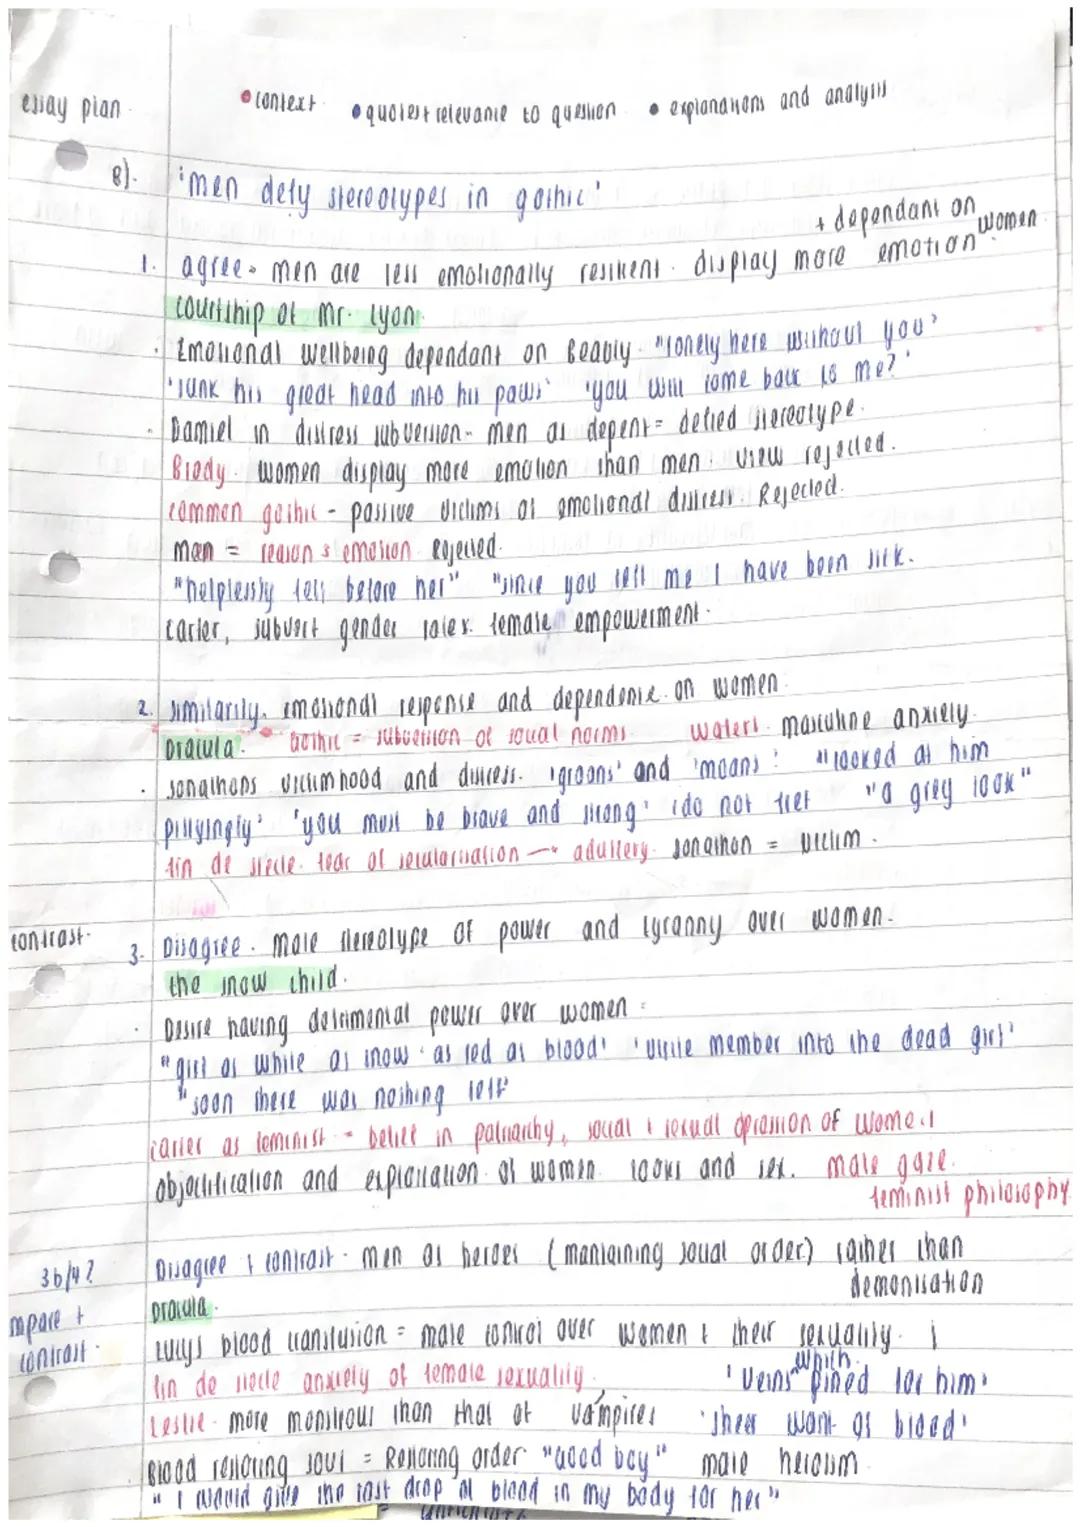 essay plan.
•context •quotes + relevance to question • explanations and analysis
8). 'men defy stereotypes in gothic'
+ dependant on women
1. agree. men are less emotionally resilient. display more emotion
courtship of mr. lyon.
· Emotional wellbeing dependant on Beauty. "lonely here without you"
'sunk his great head into his paws' 'you will come back to me?'
· Damsel in distress subversion - men as depent = defied stereotype.
Brody. women display more emotion than men. view rejected.
common gothic - passive victims of emotional distress. Rejected.
men = reason & emotion. Rejected.
"helplessly fell before her" "since you left me I have been sick.
carter, subvert gender roles. female empowerment.
2. similarily. emotional response and dependence on women.
Dracula. Gothic = subversion of social norms. waters. masculine anxiety.
· Jonathons victimhood and distress. 'groans' and 'moans' "looked at him
pityingly' 'you must be brave and strong' 'do not fret "a grey look"
fin de siecle. fear of secularisation → adultery. Jonathon = victim.
contrast.
3. Disagree. male stereotype of power and tyranny over women.
the snow child.
· Desire having detrimental power over women =
"girl as white as snow · as red as blood' 'virile member into the dead girl'
"soon there was nothing left"
carter as feminist - belief in patriarchy, social & sexual opression of women
objectification and exploitation of women looks and sex. male gaze.
feminist philosophy
3b/4?
mpare +
contrast.
Disagree & contrast. men as heroes (mantaining social order) rather than
demonisation
Dracula.
Lucys blood transfusion = male control over women & their sexuality.
fin de siecle anxiety of female sexuality. 'Veins which pined for him'
Leslie. more monstrous than that of vampires 'sheer want of blood'
· Blood restoring soul = Restoring order "good boy" male heroism
"I would give the last drop of blood in my body for her"